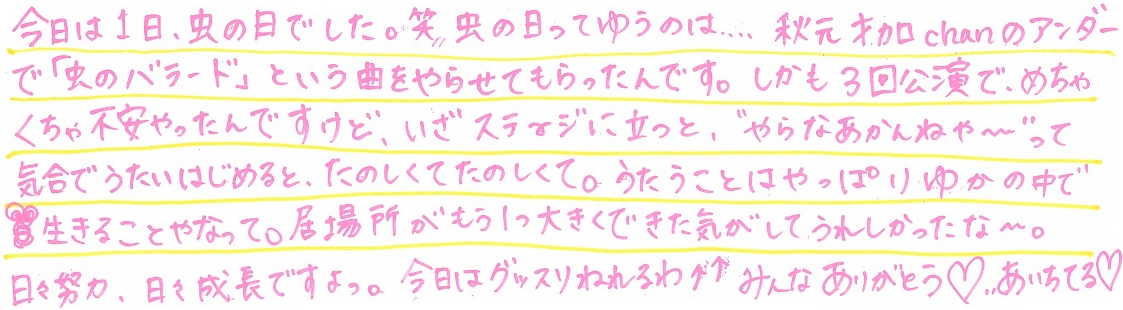 今日は1日、虫の日でした。笑 虫の日ってゆうのは.... 秋元才加chanのアンダー
で「虫のバラード」という曲をやらせてもらったんです。しかも3回公演で、めちゃ
くちゃ不安やったんですけど、いざステージに立つと、"やらなあかんねや〜"って
気合でうたいはじめると、たのしくてたのしくて。うたうことはやっぱりゆかの中で
生きることやなって。居場所がもう1つ大きくできた気がしてうれしかったな〜。
日々努力、日々成長ですよっ。今日はグッスリねれるわ↑↑みんなありがとう♡..あいちてる♡